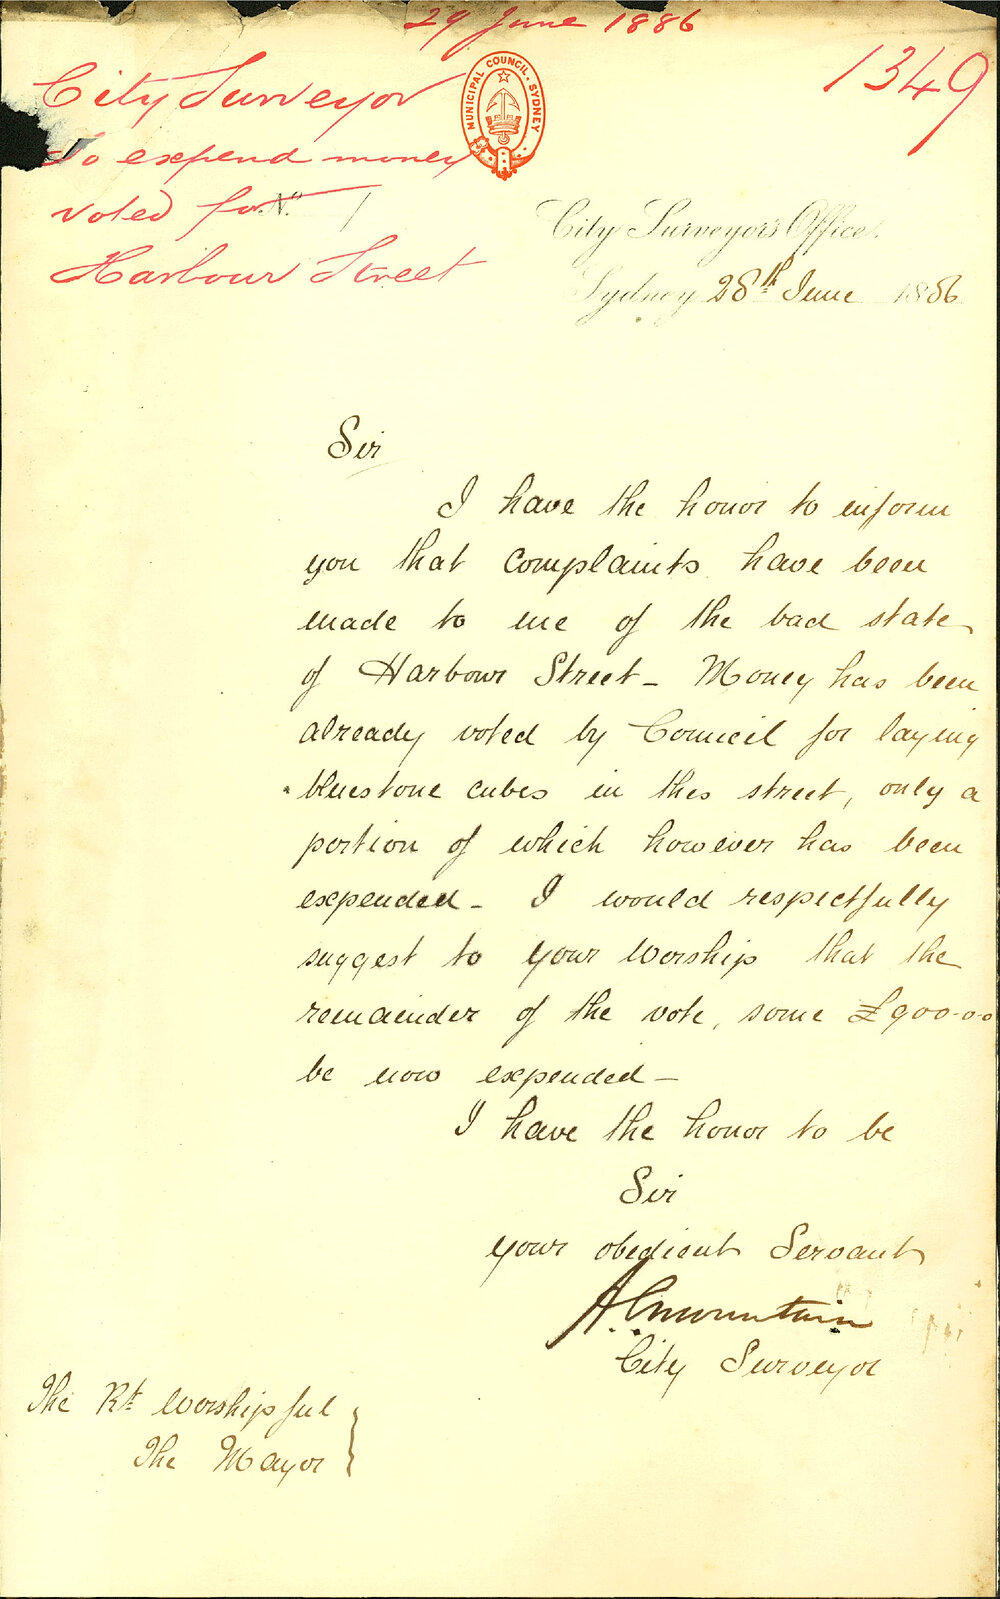 29 June 1886
1349
City Surveyor
To expend money
voted for
Harbour Street
MUNICIPAL COUNCIL. SYDNEY
No.
City Surveyor's Office.
Sydney 28th June 1886
Sir
I have the honor to inform
you that complaints have been
made to me of the bad state
of Harbour Street - Money has been
already voted by Council for laying
bluestone cubes in this street, only a
portion of which however has been
expended - I would respectfully
suggest to your Worship that the
remainder of the vote, some £900-0-0
be now expended -
I have the honor to be
Sir
your obedient Servant
A.C. Mountain
City Surveyor
The Rt. Worshipful
The Mayor